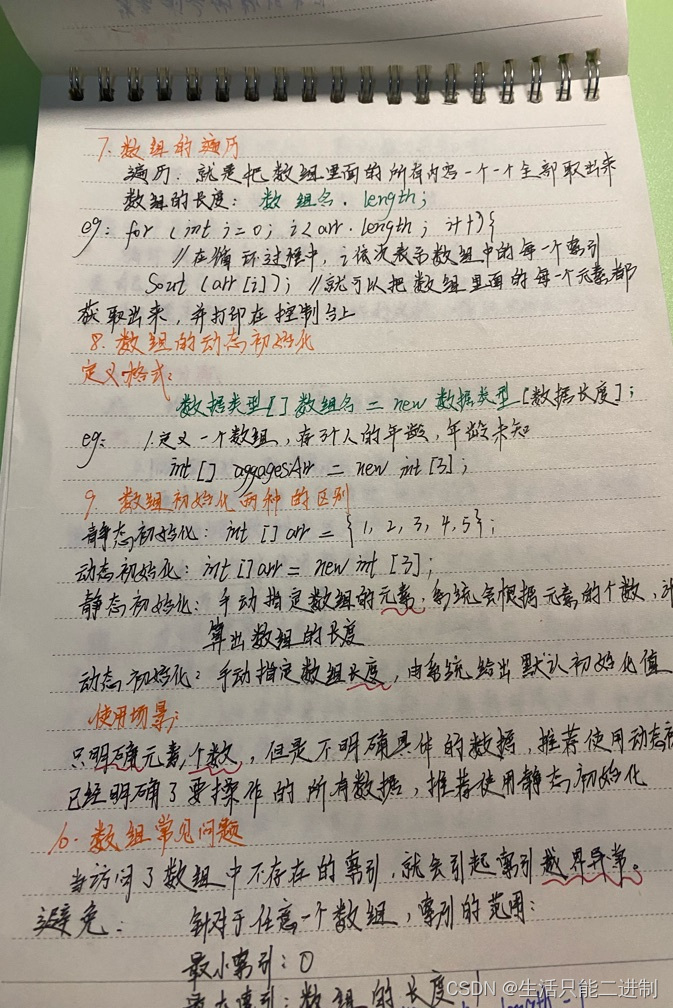 7. 数组的遍历
遍历: 就是把数组里面的所有内容一个一个全部取出来
数组的长度: 数组名. length;
eg: for (int i=0; i<arr.length; i++){
//在循环过程中, i依次表示数组中的每一个索引
Sout (arr[i]); //就可以把数组里面的每一个元素都
获取出来, 并打印在控制台上
8. 数组的动态初始化
定义格式:
数据类型[] 数组名 = new 数据类型[数据长度];
eg: 1.定义一个数组, 存3个人的年龄, 年龄未知
int[] = new int[3];
9. 数组初始化两种的区别
静态初始化: int []arr = {1, 2, 3, 4, 5};
动态初始化: int []arr = new int [3];
静态初始化: 手动指定数组的元素, 系统会根据元素的个数, 计
算出数组的长度
动态初始化: 手动指定数组长度, 由系统给出默认初始化值
使用场景:
只明确元素个数, 但是不明确具体的数据, 推荐使用动态初
已经明确了要操作的所有数据, 推荐使用静态初始化
10. 数组常见问题
当访问了数组中不存在的索引, 就会引起索引越界异常。
避免: 针对于任意一个数组, 索引的范围:
最小索引: 0
最大索引: 数组的长度-1
CSDN @生活只能二进制